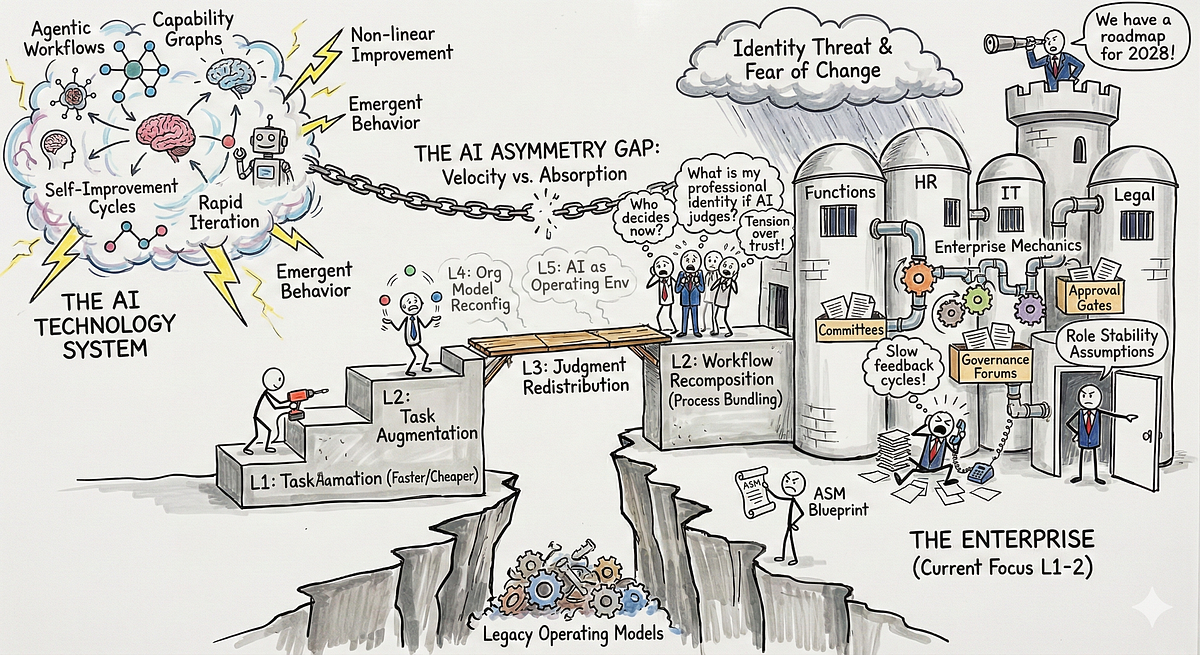 Agentic
Workflows
Capability
Graphs
Non-linear
Improvement
Emergent
Behavior
Self-Improvement
Cycles
Rapid
Iteration
Emergent
Behavior
THE AI
TECHNOLOGY
SYSTEM
THE AI ASYMMETRY GAP:
Velocity vs. Absorption
Identity Threat &
Fear of Change
We have a
roadmap
for 2028!
Who
decides
now?
What is my
professional
identity if AI
judges?
Tension
over
trust!
L4: Org
Model
Reconfig
L5: AI as
Operating Env
L3: Judgment
Redistribution
L2:
Task
Augmentation
L1: TaskAamation (Faster/Cheaper)
L2: Workflow
Recomposition
(Process Bundling)
Functions
HR
IT
Legal
Enterprise Mechanics
Committees
Approval
Gates
Governance
Forums
Slow
feedback
cycles!
Role Stability
Assumptions
ASM
ASM
Blueprint
THE ENTERPRISE
(Current Focus L1-2)
Legacy Operating Models